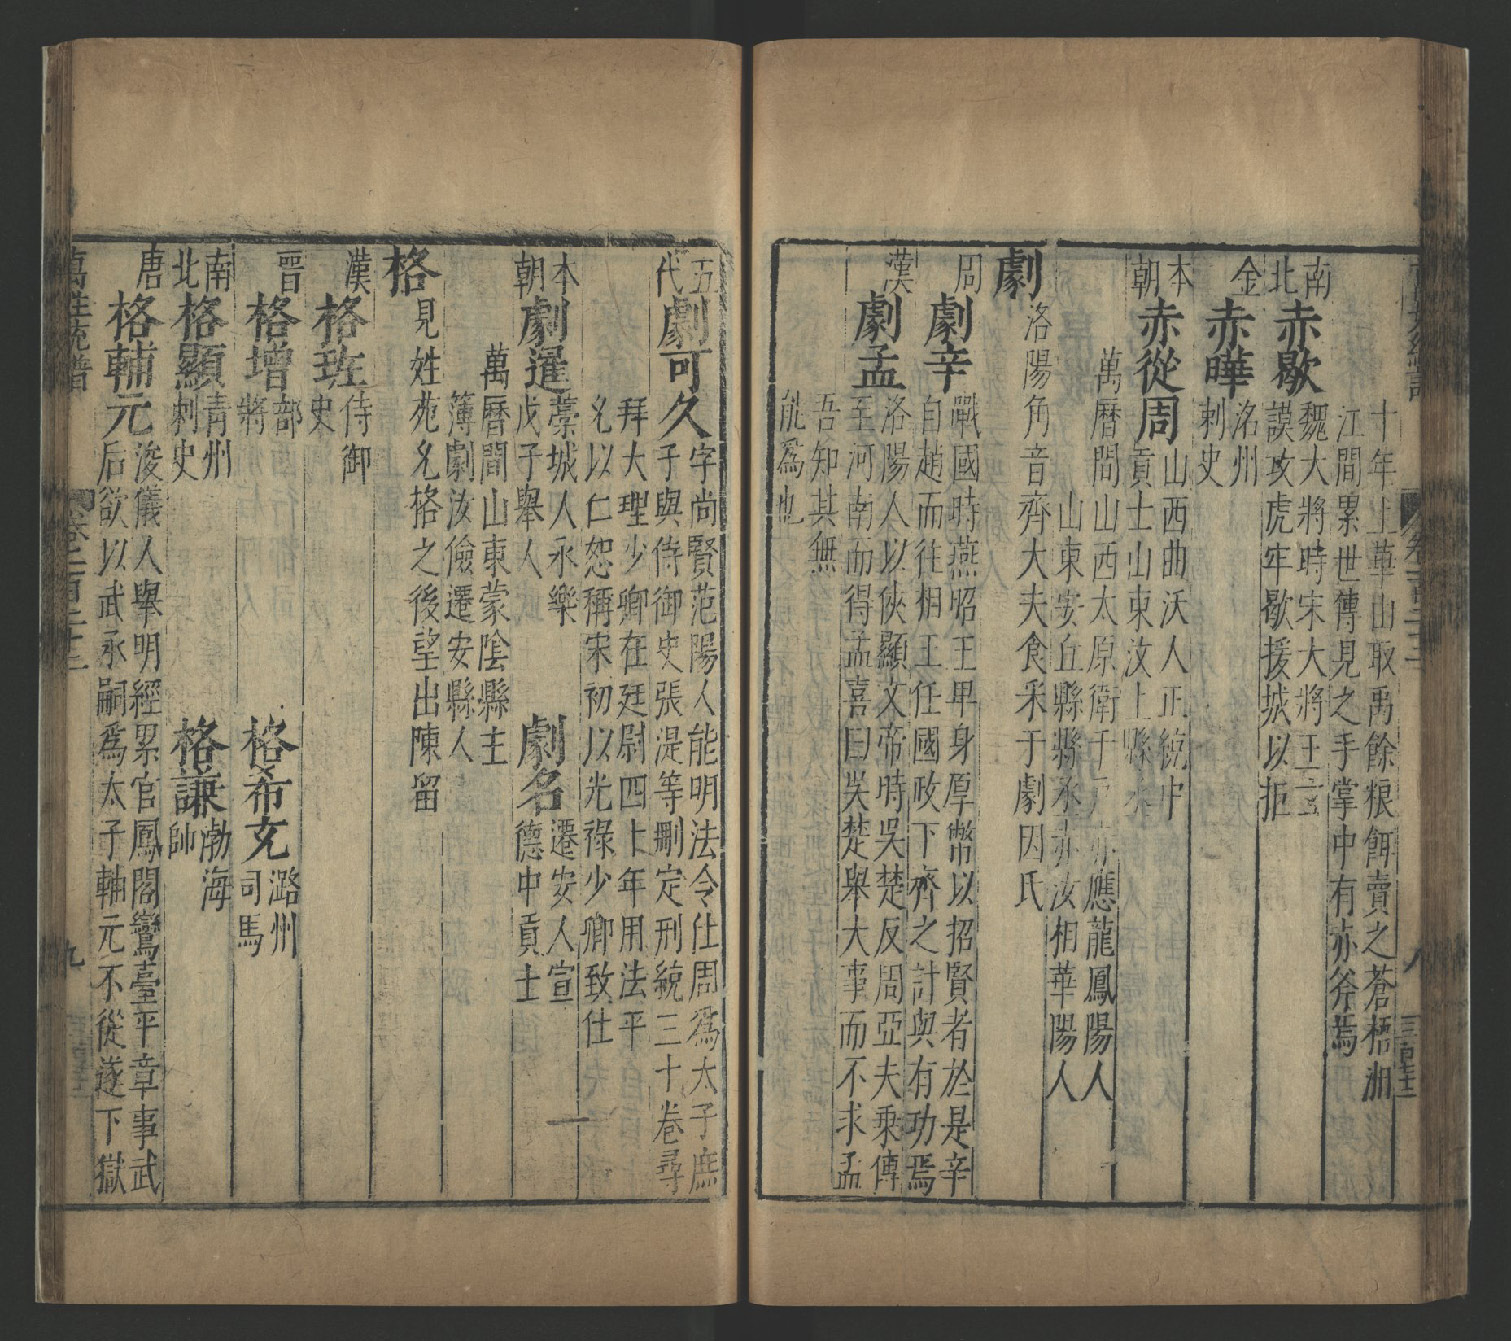 十年上華山取禹餘粮餌賣之蒼梧湘
江間累世傳見之手掌中有赤斧焉
南北
赤歇
魏大將時宋大將王玄
謨攻虎牢歇援城以拒
金
赤曄
洺州
刺史
本朝
赤從周
山西曲沃人正統中
貢士山東汶上縣
萬曆間山西太原衛千戶赤應龍鳳陽人
山東安丘縣縣丞赤汝相華陽人
劇
洛陽角音齊大夫食釆于劇因氏
周
劇辛
戰國時燕昭王卑身厚幣以招賢者於是辛
自趙而往相王任國政下齊之計與有功焉
漢
劇孟
洛陽人以俠顯文帝時吳楚反周亞夫乘傳
至河南而得孟喜曰吳楚舉大事而不求孟
吾知其無
能爲也
五代
劇可久
字尚賢范陽人能明法令仕周爲太子庶
子與侍御史張湜等刪定刑統三十卷尋
拜大理少卿在廷尉四上年用法平
允以仁恕稱宋初以光祿少卿致仕
本朝
劇暹
藁城人永樂
戊子舉人
劇名
遷安人宣
德中貢士
萬曆間山東蒙陰縣主
簿劇汝儉遷安縣人
格
見姓苑允格之後望出陳留
漢
格班
侍御
史
晋
格增
部
將
格希玄
潞州
司馬
南北
格顯
青州
刺史
格謙
渤海
帥
唐
格輔元
浚儀人舉明經累官鳳閣鸞臺平章事武
后欲以武承嗣爲太子軸元不從遂下獄
萬姓統譜
卷一百二十二
九